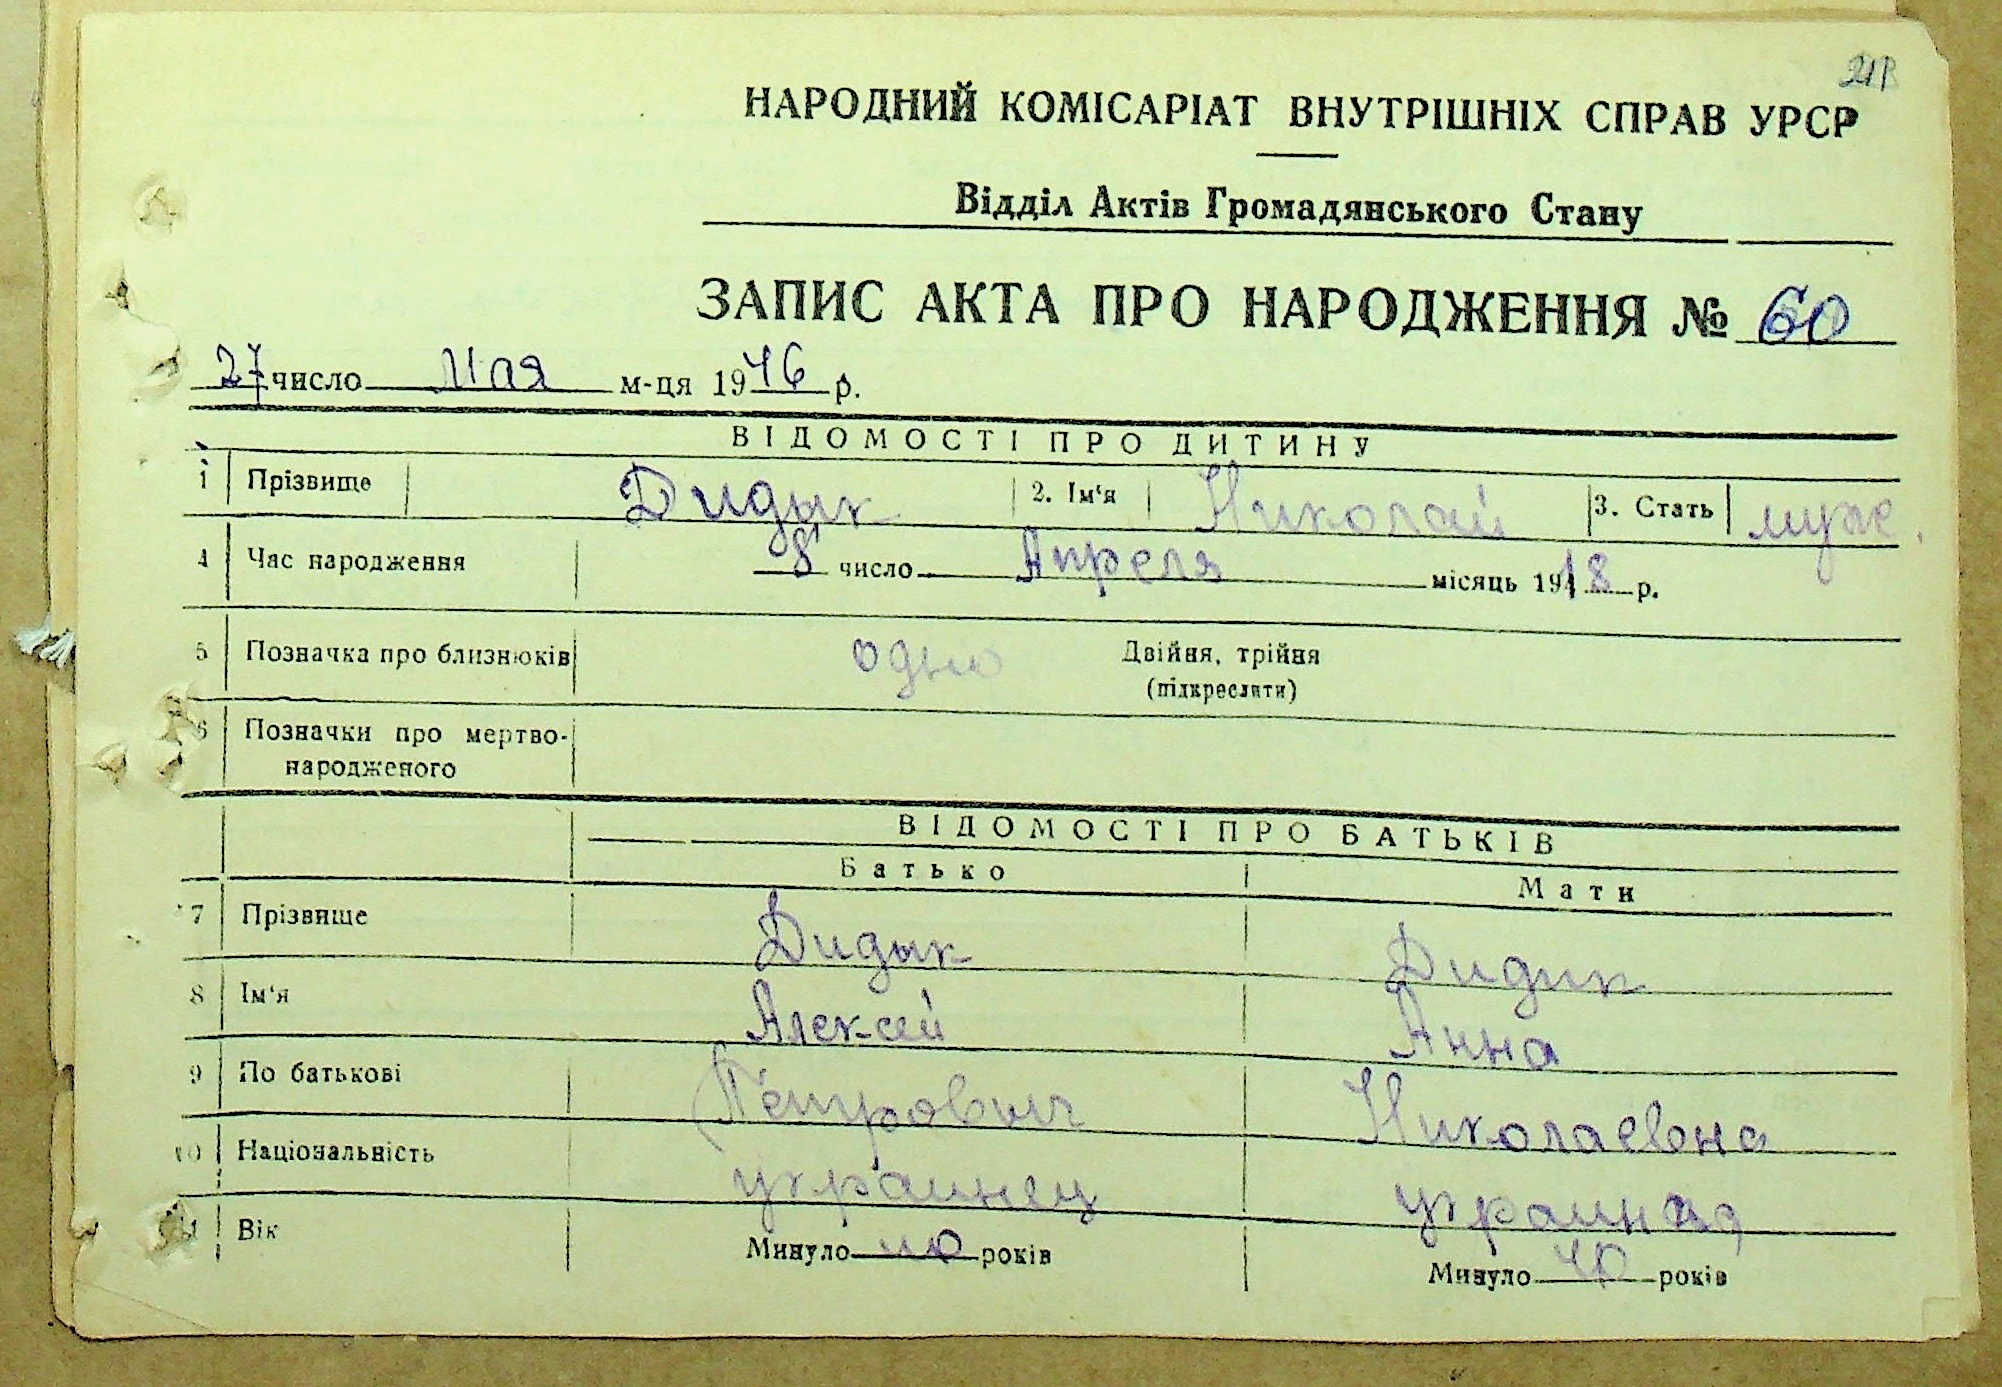 НАРОДНИЙ КОМІСАРІАТ ВНУТРІШНІХ СПРАВ УРСР
Відділ Актів Громадянського Стану
ЗАПИС АКТА ПРО НАРОДЖЕННЯ № 60
27 число мая м-ця 1946 р.
ВІДОМОСТІ ПРО ДИТИНУ
1 Прізвище Дидык 2. Ім'я Николай 3. Стать муж.
4 Час народження 8 число Апреля місяць 1918 р.
5 Позначка про близнюків одно Двійня, трійня
(підкреслити)
6 Позначки про мертво-
народженого
ВІДОМОСТІ ПРО БАТЬКІВ
Батько Мати
7 Прізвище Дидык Дидик
8 Ім'я Алексей Анна
9 По батькові Петрович Николаевна
10 Національність украинец
11 Вік Минуло 40 років Минуло 40 років